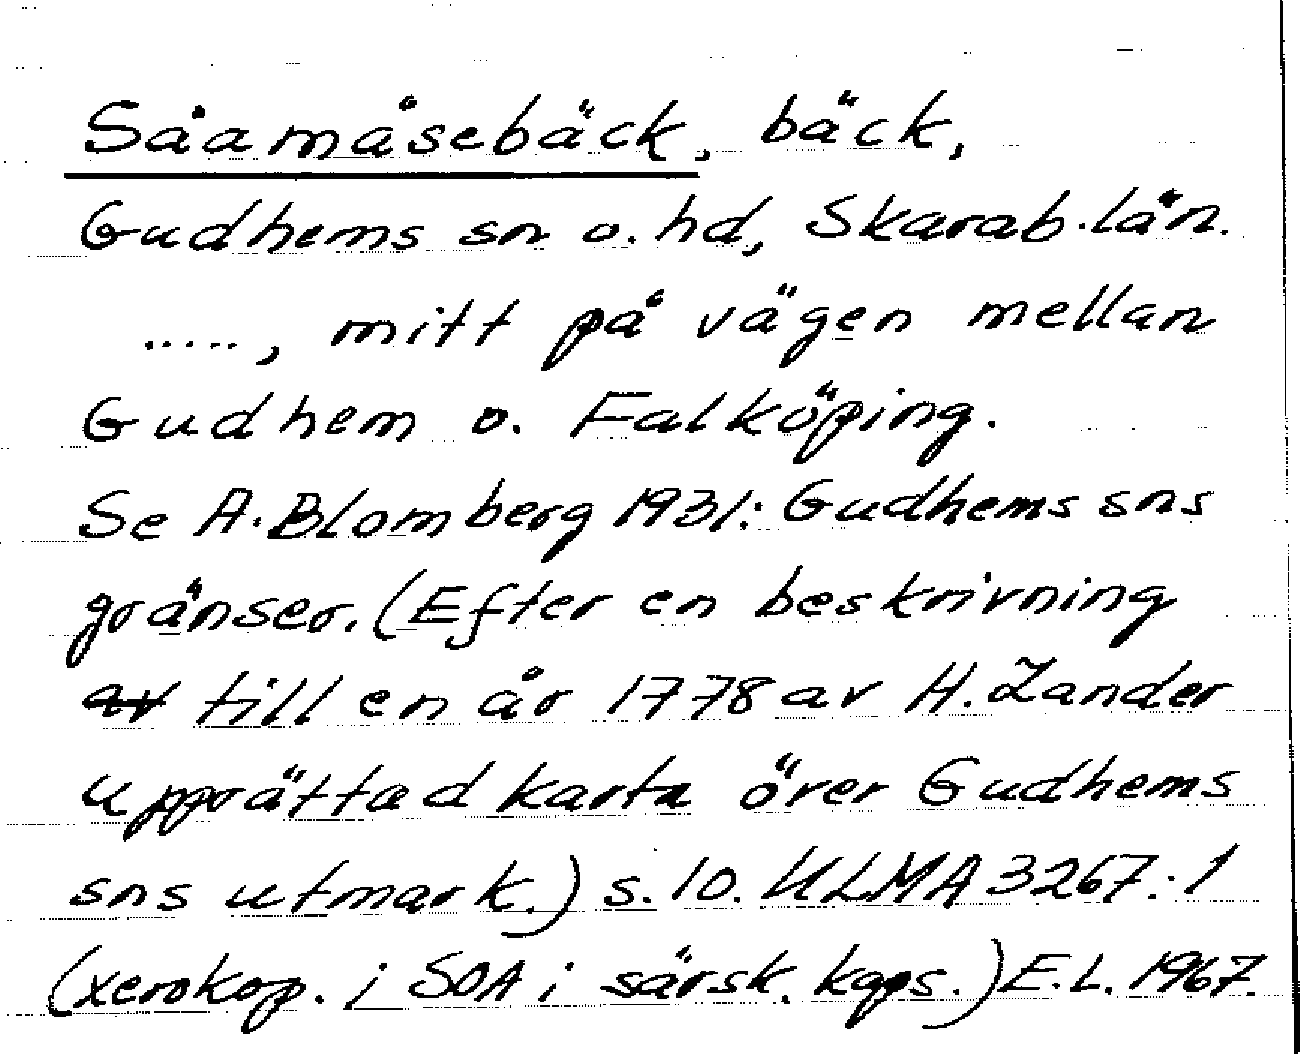 Såamåsebäck, bäck,
Gudhems sn o. hd, Skarab. län.
....., mitt på vägen mellan
Gudhem o. Falköping.
Se A. Blomberg 1931: Gudhems sns
gränser. (Efter en beskrivning
av till en år 1778 av H. Zander
upprättad karta över Gudhems
sns utmark.) s. 10. ULMA 3267:1
(xerokop. i SOA i särsk. kaps.) E.L. 1967.